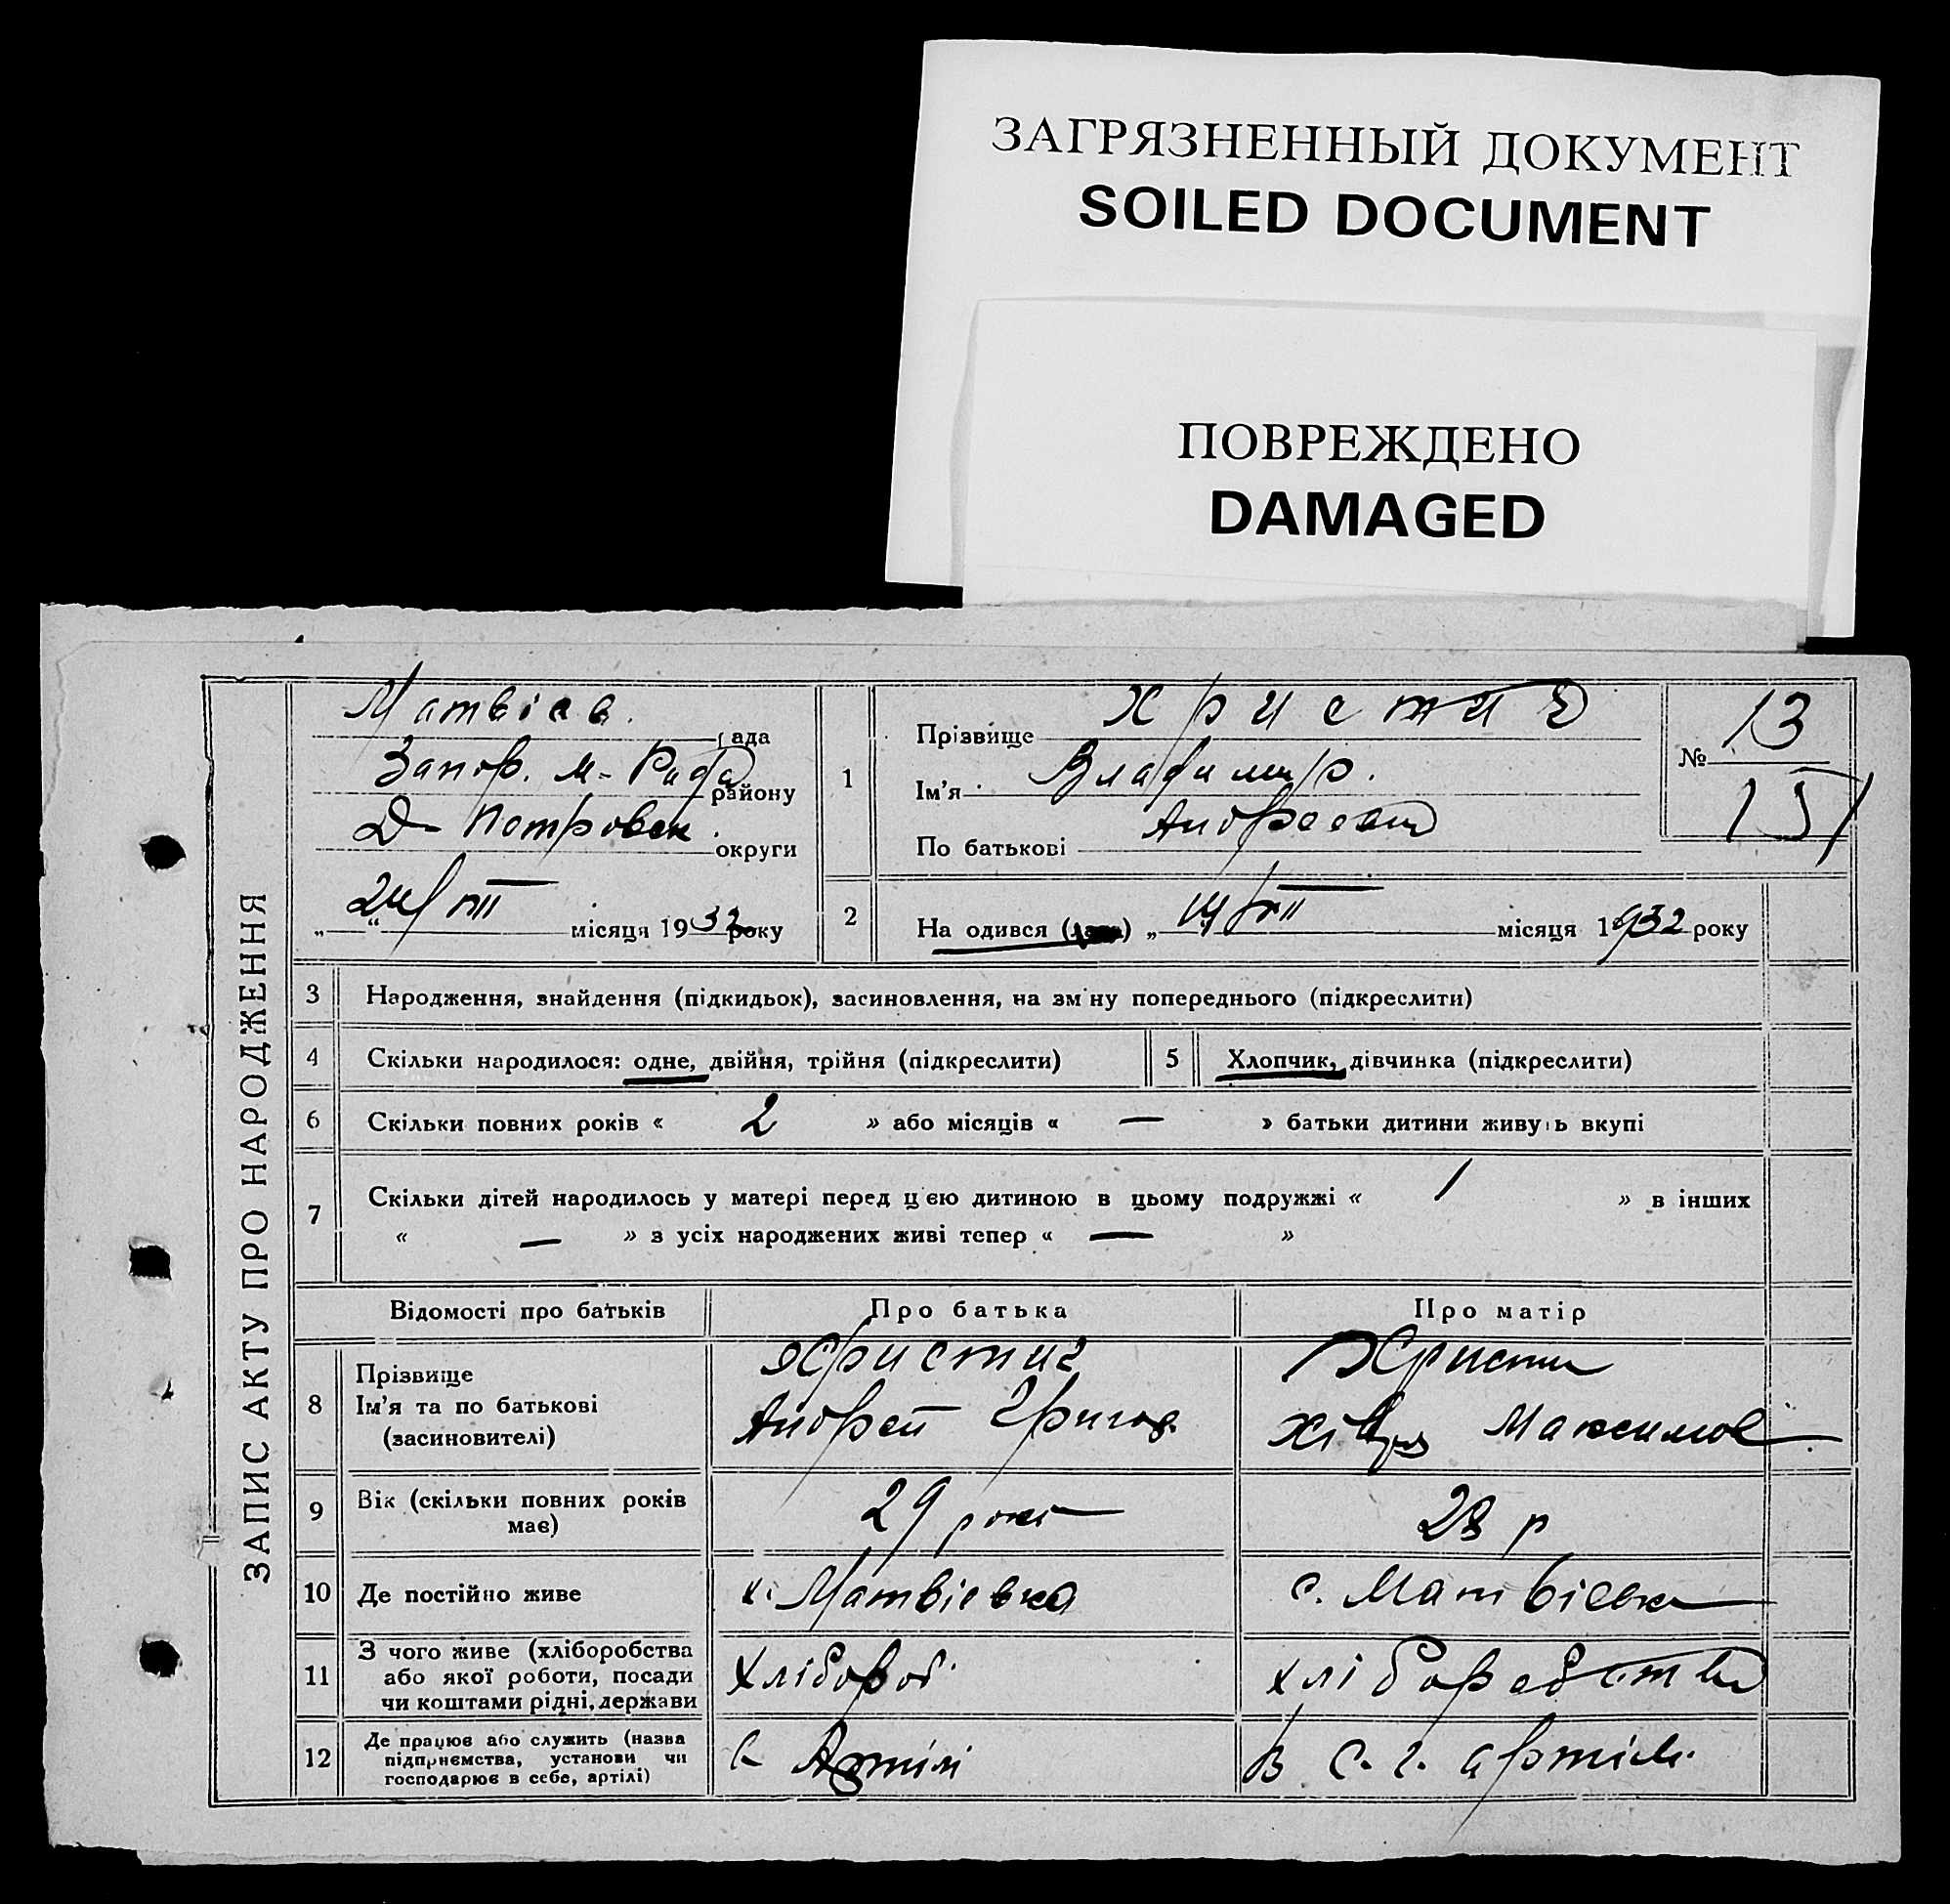 ЗАГРЯЗНЕННЫЙ ДОКУМЕНТ
SOILED DOCUMENT
ПОВРЕЖДЕНО
DAMAGED
ЗАПИС АКТУ ПРО НАРОДЖЕННЯ
Матвіев. рада
Запор. м-Рада району
Д-Петровск. округи
„24/VII“ місяця 1932 року
1
Прізвище Христич
Ім'я Владимир.
По батькові Андреевич
№ 13
151
2
Народився „14/VII місяця 1932 року
3 Народження, знайдення (підкидьок), засиновлення, на зміну попереднього (підкреслити)
4 Скільки народилося: одне, двійня, трійня (підкреслити)
5 Хлопчик, дівчинка (підкреслити)
6 Скільки повних років « 2 » або місяців « — » батьки дитини живуть вкупі
7 Скільки дітей народилось у матері перед цією дитиною в цьому подружжі « 1 » в інших
« — » з усіх народжених живі тепер « — »
Відомості про батьків Про батька Про матір
8
Прізвище
Ім'я та по батькові
(засиновителі)
Христич
Андрей Григор.
Христич
Максимов
9
Вік (скільки повних років
має)
29 років
28 р
10 Де постійно живе с. Матвіевка с. Матвіевка
11
З чого живе (хліборобства
або якої роботи, посади
чи коштами рідні, держави
Хлібороб.
хліборобства
12
Де працює або служить (назва
підприємства, установи чи
господарює в себе, артілі)
с Артілі
в с.г. артілі.